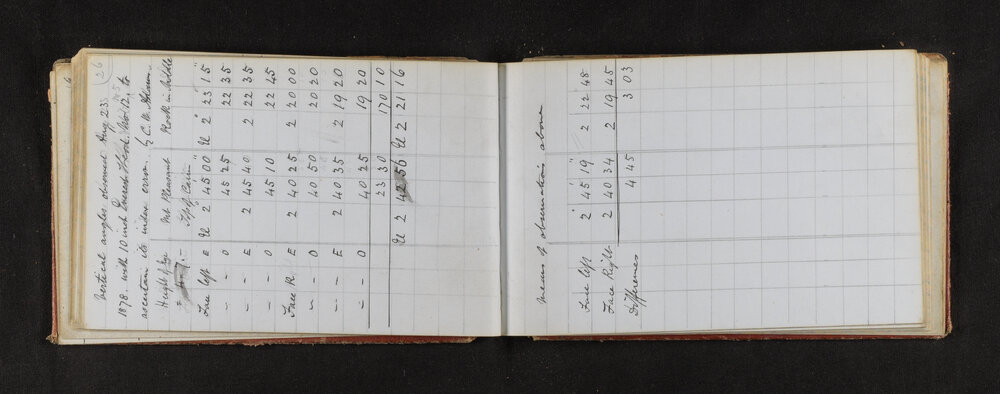 26
Vertical angles observed Aug. 23.
1878 with 10 inch Theod. No. 12. to
ascertain its index error. by C. W. Adams
Height of Eye Mt. Pleasant Rock in Middle
Top of Cairn
Face left E El 2° 45' 00" El 2° 23' 15"
- - O 45 25 22 35
- - E 2 45 40 2 22 35
- - O 45 10 22 45
Face R. E 2 40 25 2 20 00
- - O 40 50 20 20
- - E 2 40 35 2 19 20
- - O 40 25 19 20
23 30 170 10
El 2 42 56 El 2 21 16
Means of observations above
Face left 2° 45' 19" 2 22 48
Face Right 2 40 34 2 19 45
Differences 4 45 3 03